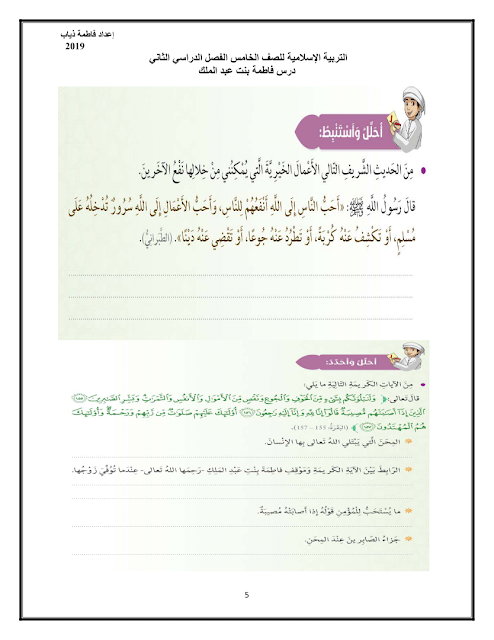 إعداد فاطمة ذياب
2019
التربية الإسلامية للصف الخامس الفصل الدراسي الثاني
درس فاطمة بنت عبد الملك
أُحَلِّلُ وَأَسْتَنْبِطُ:
• مِنَ الحَديثِ الشَّريفِ التّالي الأَعْمالَ الخَيْرِيَّةَ الَّتي يُمْكِنُني مِنْ خِلالِها نَفْعُ الآخَرينَ.
قالَ رَسُولُ اللَّهِ ﷺ: «أَحَبُّ النَّاسِ إِلَى اللَّهِ أَنْفَعُهُمْ لِلنَّاسِ، وَأَحَبُّ الأَعْمَالِ إِلَى اللَّهِ سُرُورٌ تُدْخِلُهُ عَلَى
مُسْلِمٍ، أَوْ تَكْشِفُ عَنْهُ كُرْبَةً، أَوْ تَطْرُدُ عَنْهُ جُوعًا، أَوْ تَقْضِي عَنْهُ دَيْنًا». (الطَّبَرانِيُّ).
أُحَلِّلُ وَأُحَدِّدُ:
• مِنَ الآياتِ الكَريمَةِ التّالِيَةِ ما يَلي:
قالَ تَعالى: ﴿وَلَنَبْلُوَنَّكُم بِشَيْءٍ مِّنَ الْخَوْفِ وَالْجُوعِ وَنَقْصٍ مِّنَ الْأَمْوَالِ وَالْأَنفُسِ وَالثَّمَرَاتِ وَبَشِّرِ الصَّابِرِينَ ﴿١٥٥﴾
الَّذِينَ إِذَا أَصَابَتْهُم مُّصِيبَةٌ قَالُوا إِنَّا لِلَّهِ وَإِنَّا إِلَيْهِ رَاجِعُونَ ﴿١٥٦﴾ أُولَٰئِكَ عَلَيْهِمْ صَلَوَاتٌ مِّن رَّبِّهِمْ وَرَحْمَةٌ وَأُولَٰئِكَ
هُمُ الْمُهْتَدُونَ ﴿١٥٧﴾﴾ (البقرة: 155 – 157).
المِحَنَ الَّتي يَبْتَلي اللهُ تَعالى بِها الإِنْسانَ.
الرّابِطَ بَيْنَ الآيَةِ الكَريمَةِ وَمَوْقِفِ فاطِمَةَ بِنْتِ عَبْدِ المَلِكِ -رَحِمَها اللهُ تَعالى- عِنْدَما تُوُفِّيَ زَوْجُها.
ما يُسْتَحَبُّ لِلْمُؤْمِنِ قَوْلُهُ إِذا أَصابَتْهُ مُصيبَةٌ.
جَزاءَ الصّابِرينَ عِنْدَ المِحَنِ.
5